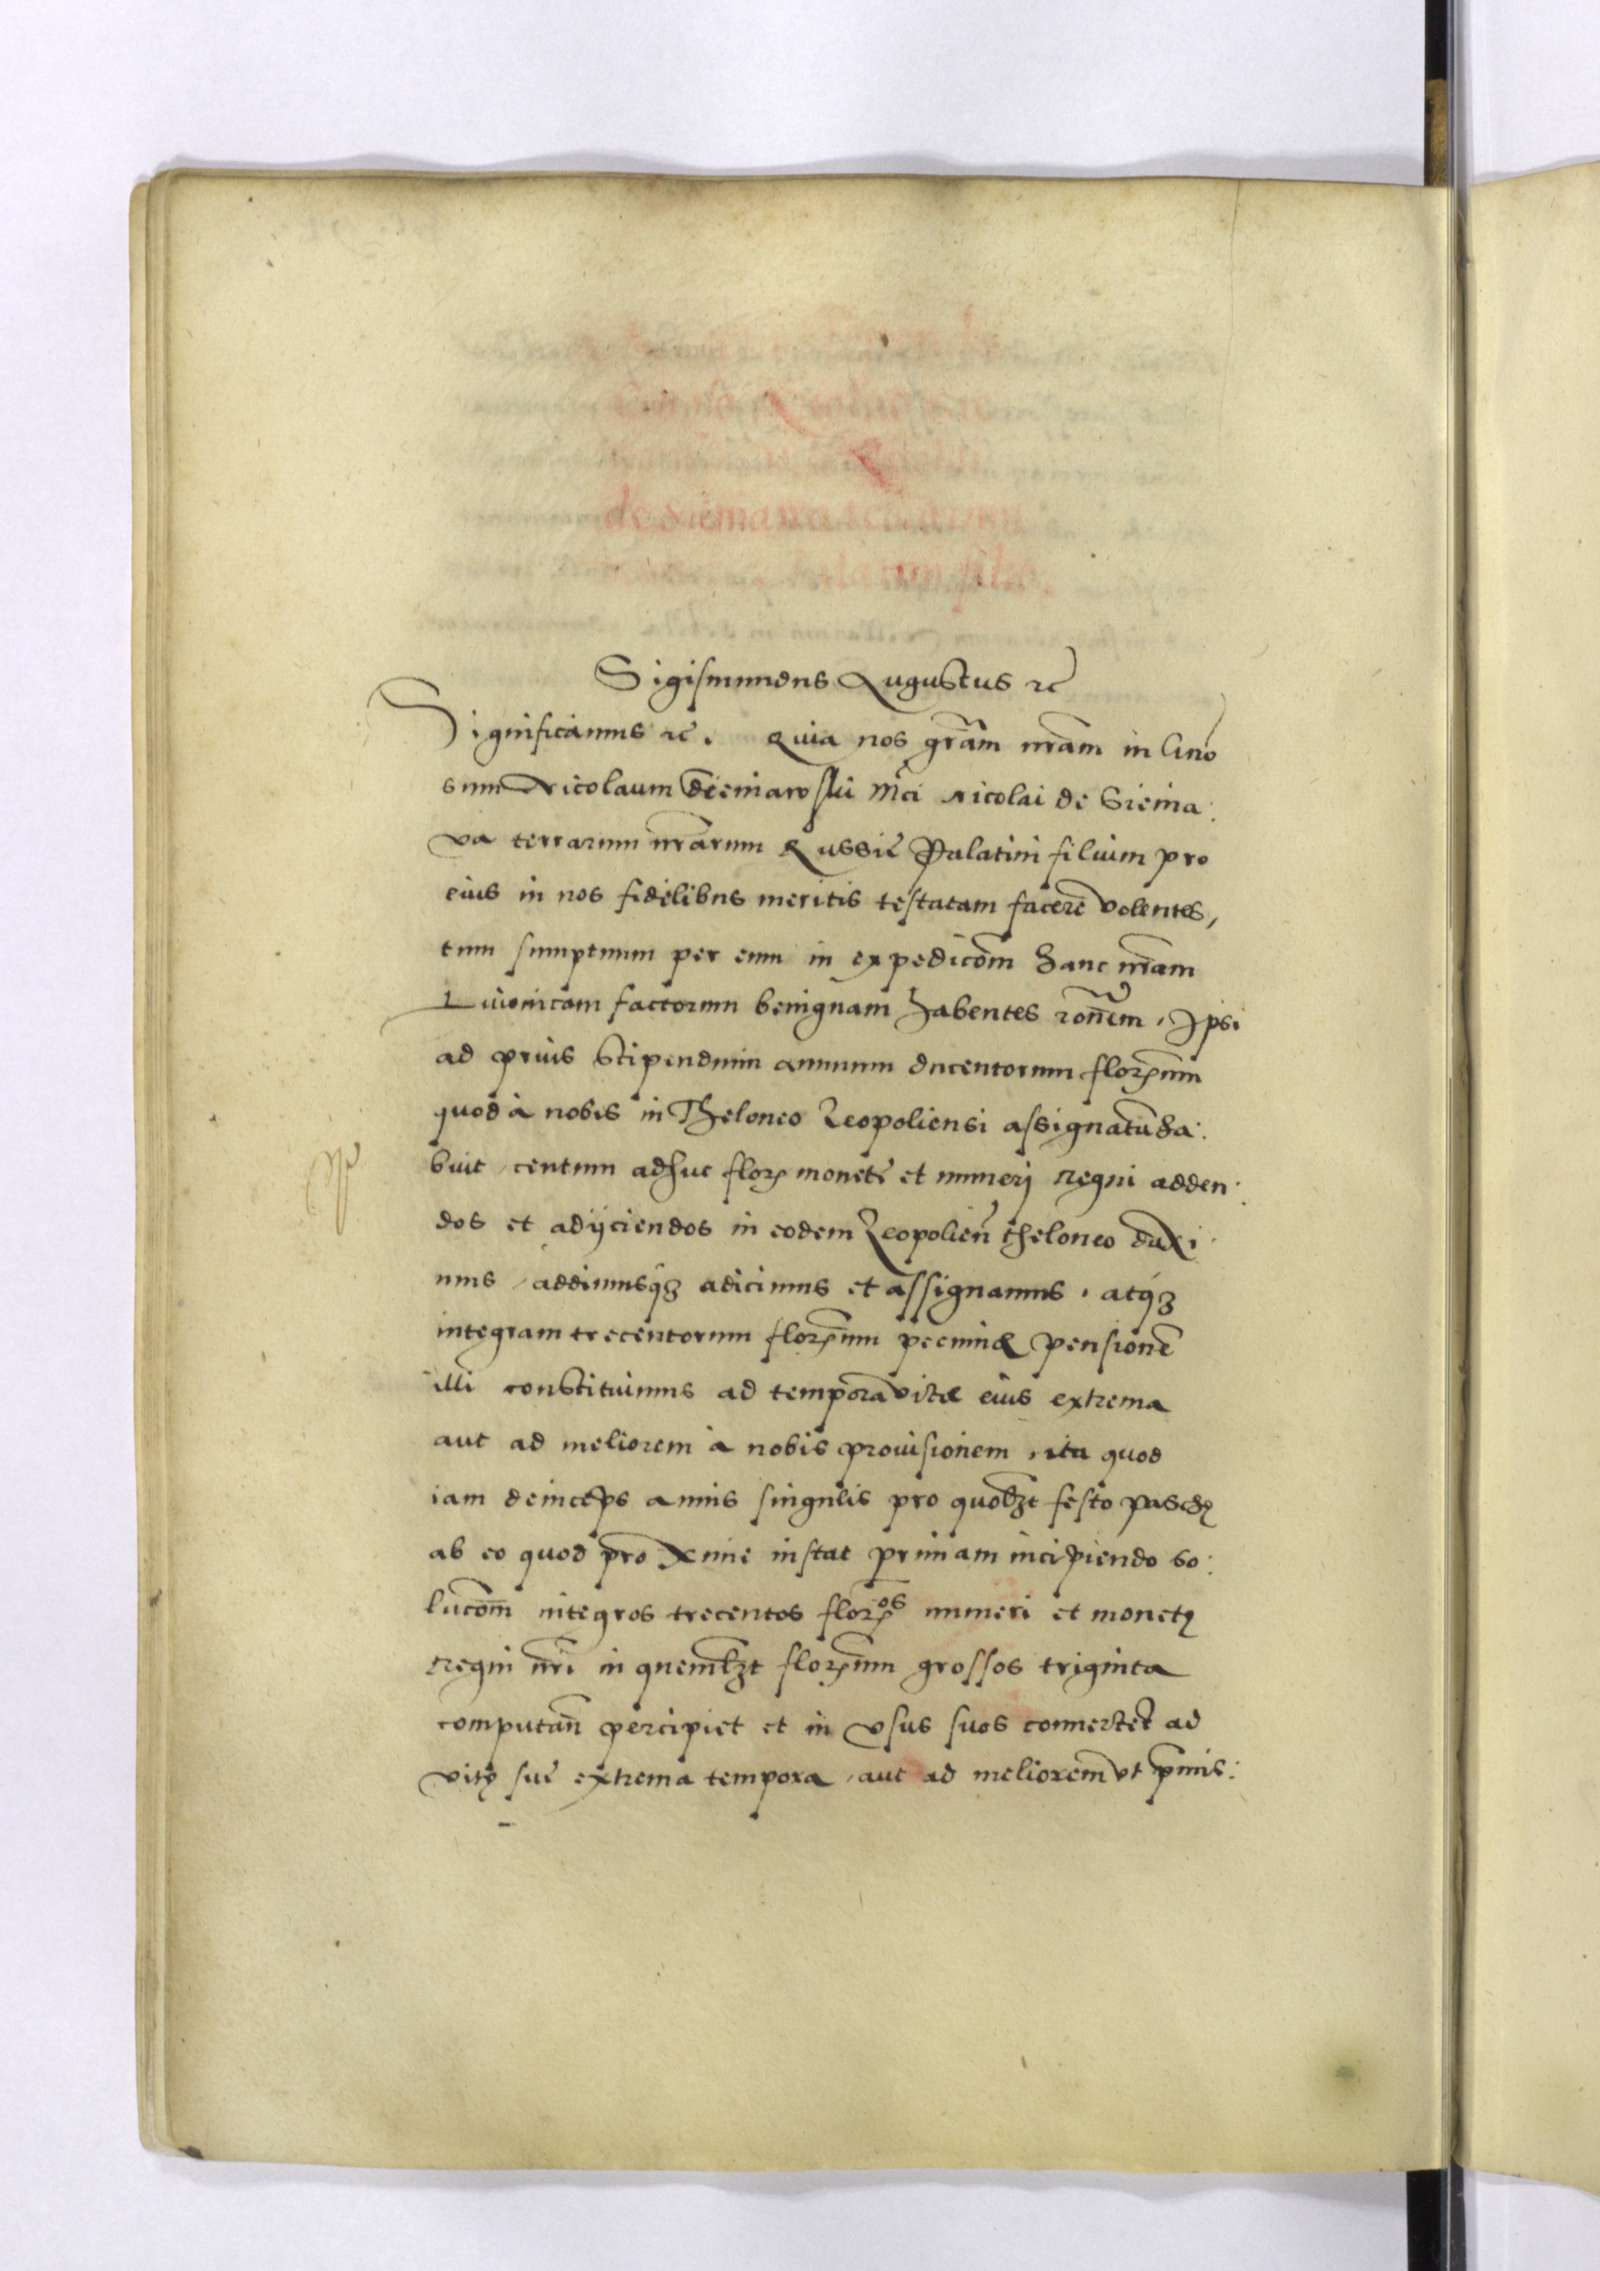 Sigismundus Augustus rc̄
Significamus rc̄. Quia nos grām nrām in Gn̄o
sum Nicolaum Sieniawski Mci Nicolai de Sienia:
va terrarum nrārum Russię Palatini filium pro
eius in nos fidelibus meritis testatam facere volentes,
tum sumptuum per eum in expedicōm hanc nrām
Livonicam factorum benignam habentes rōnem, Ipsi
ad prius stipendium annuum ducentorum florenum
quod à nobis in Theloneo Leopoliensi assignatū ha:
buit, centum adhuc flor monetę et numeri Regni adden:
dos et adijciendos in eodem Leopolien̄ theloneo duxi:
mus, addimusq3 adicimus et assignamus, atq3
integram trecentorum florenum pecuniæ pensionē
illi constituimus ad tempora vitæ eius extrema
aut ad meliorem à nobis provisionem, ita quod
iam deinceps annis singulis pro quobzt festo Paschę
ab eo quod proxime instat primam incipiendo so:
lucōm integros trecentos floros numeri et monetę
Regni nr̄i in quemlzt florenum grossos triginta
computan̄ percipiet et in vsus suos convertet ad
vitę suę extrema tempora, aut ad meliorem vt p̄mis: